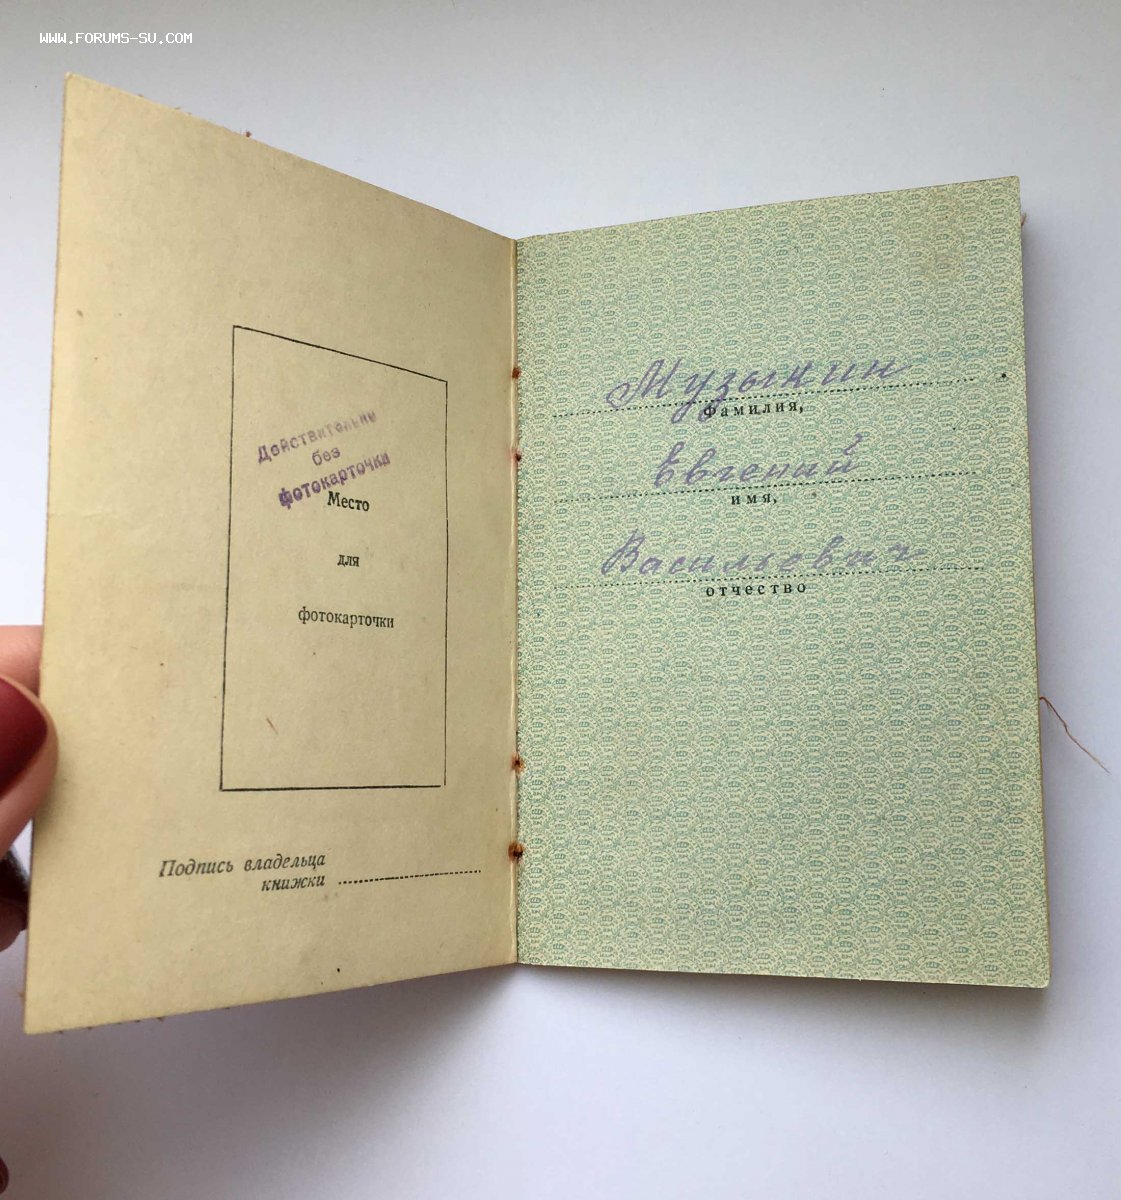 WWW.FORUMS-SU.COM
Действительно
без
фотокарточки
Место
для
фотокарточки
Подпись владельца
книжки
Музыкин
фамилия,
Евгений
имя,
Васильевич
отчество